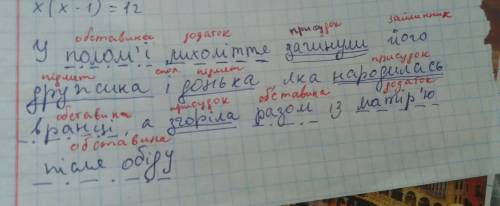 x(x-1)=12
обставина додаток присудок займинник
У полом'ї лихоліття загинули його
підмет спол підмет присудок
дружина і донька яка народилась
обставина присудок обставина додаток
вранці, а згоріла разом із матір'ю
обставина
після обіду